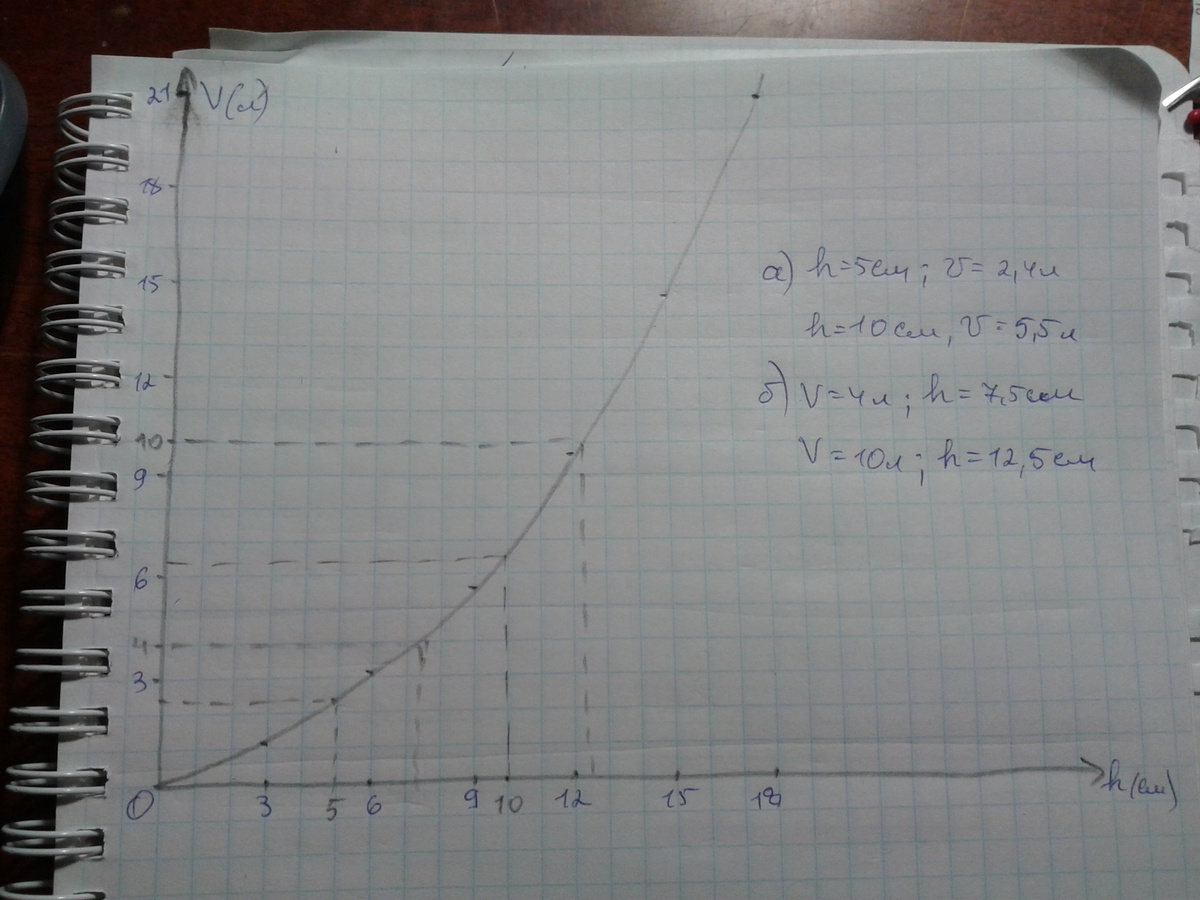 21 V(л)
18
15
12
10
9
6
4
3
0 3 5 6 9 10 12 15 18 h(см)
а) h=5см; V=2,4л
h=10см, V=5,5л
б) V=4л; h=7,5см
V=10л; h=12,5см